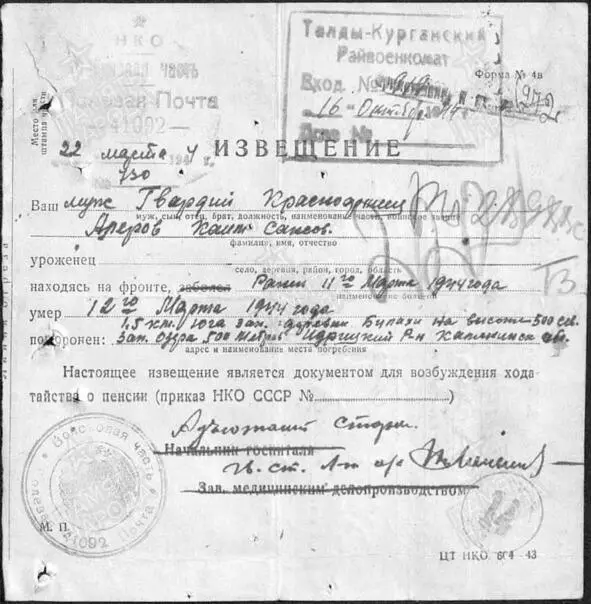 НКО
Талды-Курганский
Райвоенкомат
Вход. №
16 Октябр
Дело №
Форма № 4в
Полевая Почта
41092
Место для
штампа части
22 марта 194 4 г.
130
ИЗВЕЩЕНИЕ
Ваш муж Гвардий Красноармеец
муж, сын, отец, брат, должность, наименование части, воинское звание
фамилия, имя, отчество
уроженец
село, деревня, район, город, область
находясь на фронте, заболел Ранен 11го Марта 1944 года
наименование болезни
умер 12го Марта 1944 года
1,5 км. юго зап. деревни на высоте 500 сев.
похоронен: зап. Озера 500 метров Идрицкий р-н Калининск
адрес и наименование места погребения
Настоящее извещение является документом для возбуждения хода-
тайства о пенсии (приказ НКО СССР №
Начальник госпиталя
Гв. ст. л-т
Зав. медицинским делопроизводством
Войсковая часть
Полевая Почта
41092
М. П.
ЦТ НКО 604 43